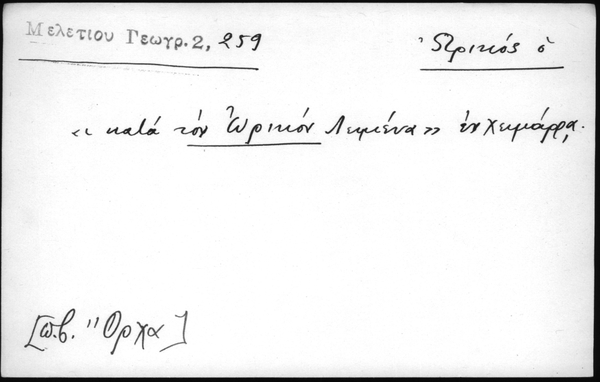 Μελετίου Γεωγρ. 2, 259
Ὠρικός ὁ
« κατά τόν Ὠρικόν Λιμένα » ἐν Χειμάρρᾳ.
[π.β. Ὄρχα]